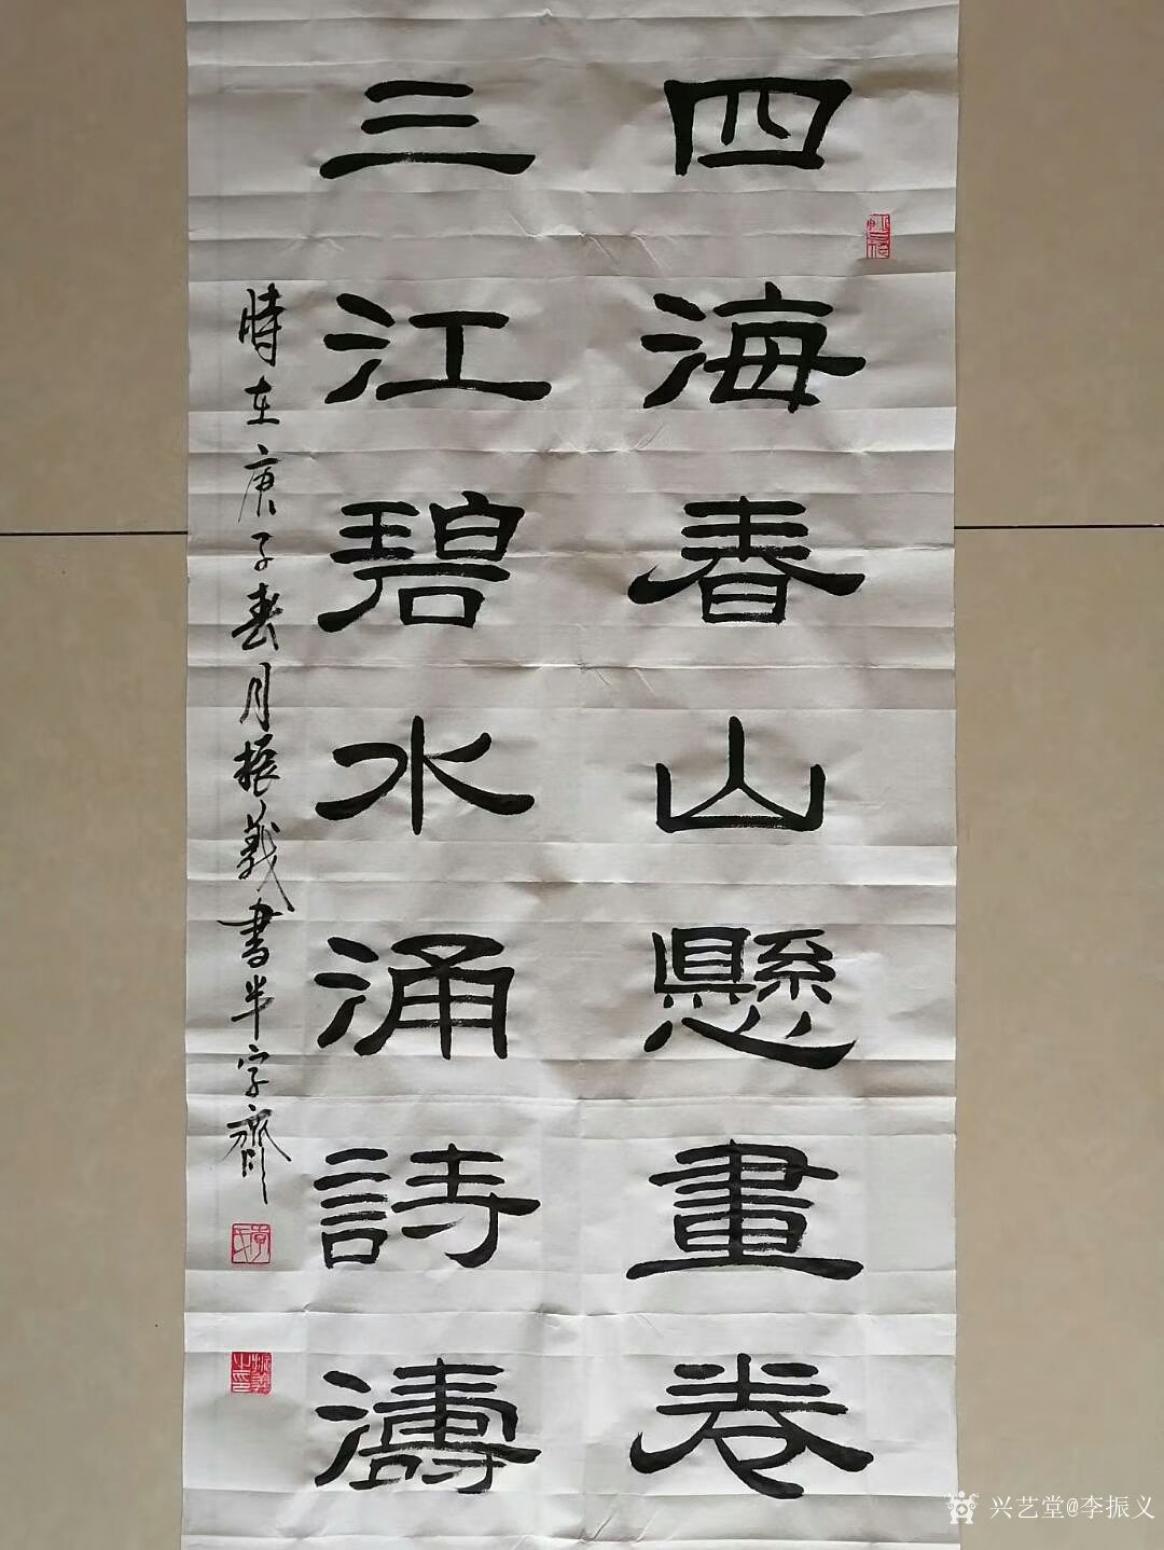 四海春山懸畫卷
三江碧水涌詩濤
時在庚子春月振義書半字齋
兴艺堂@李振义